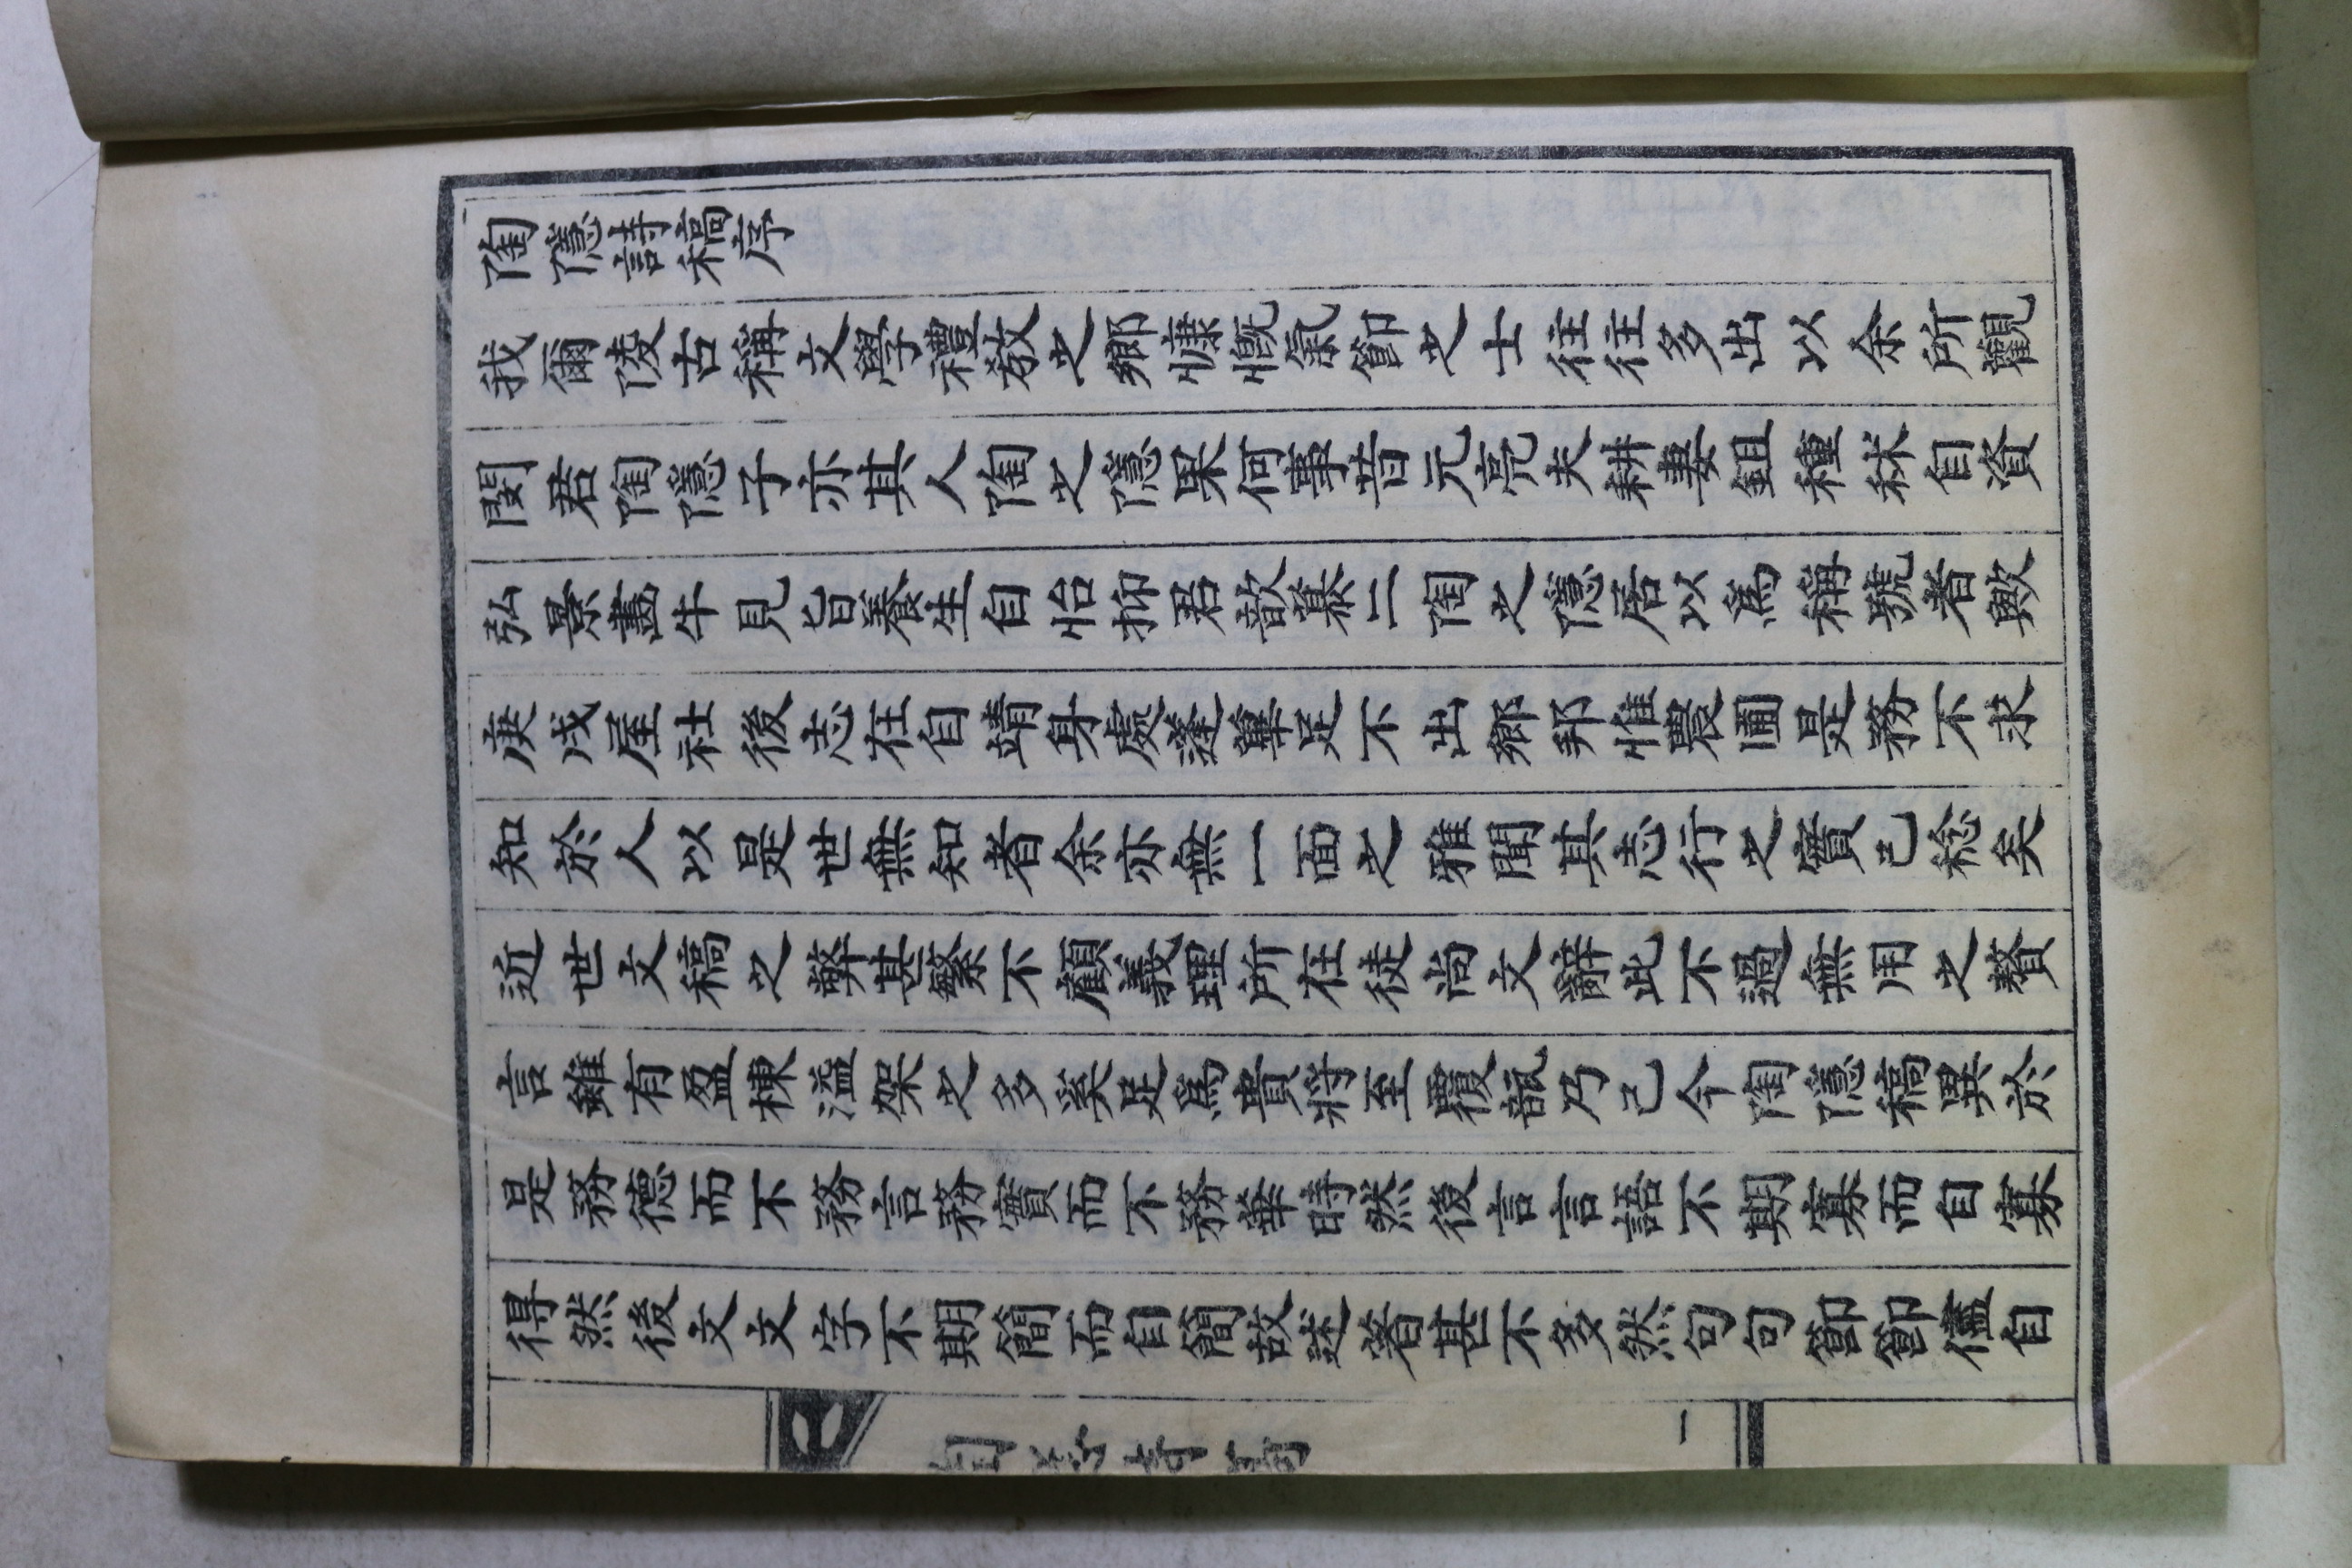 陶隱詩稿序
我爾陵古稱文學禮教之鄉慷慨氣節之士往往多出以余所觀
閔君陶隱子亦其人陶之隱果何事昔元亮夫耕妻鉏種秫自資
弘景畵牛見旨養生自怡抑君歆慕二陶之隱居以爲稱號者歟
庚戌屋社後志在自靖身處蓬蓽足不出鄉邦惟農圃是務不求
知於人以是世無知者余亦無一面之雅聞其志行之實已稔矣
近世文稿之弊甚繁不顧義理所在徒尙文辭此不過無用之贅
言雖有盈棟溢架之多奚足爲貴將至覆瓿乃已今陶隱稿異於
是務德而不務言務實而不務華時然後言言語不期寡而自寡
得然後文文字不期簡而自簡故述著甚不多然句句節節儘自
陶隱詩稿
一